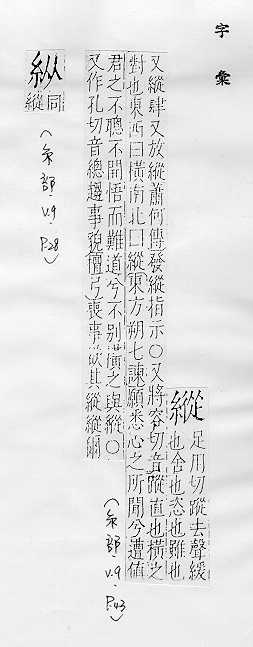 字彙
縱
足用切蹤去聲緩
也舍也恣也雖也
又將容切音蹤直也橫之
對也東西曰橫南北曰縱東方朔七諫願悉心之所聞兮遭值
君之不聰不開悟而難道兮不別橫之與縱〇
又縱肆又放縱蕭何傳發縱指示〇
又作孔切音總趨事貌檀弓喪事欲其縱縱爾
(糸部 V.9. P.43)
縱
同
縱
(糸部 V.9 P.28)